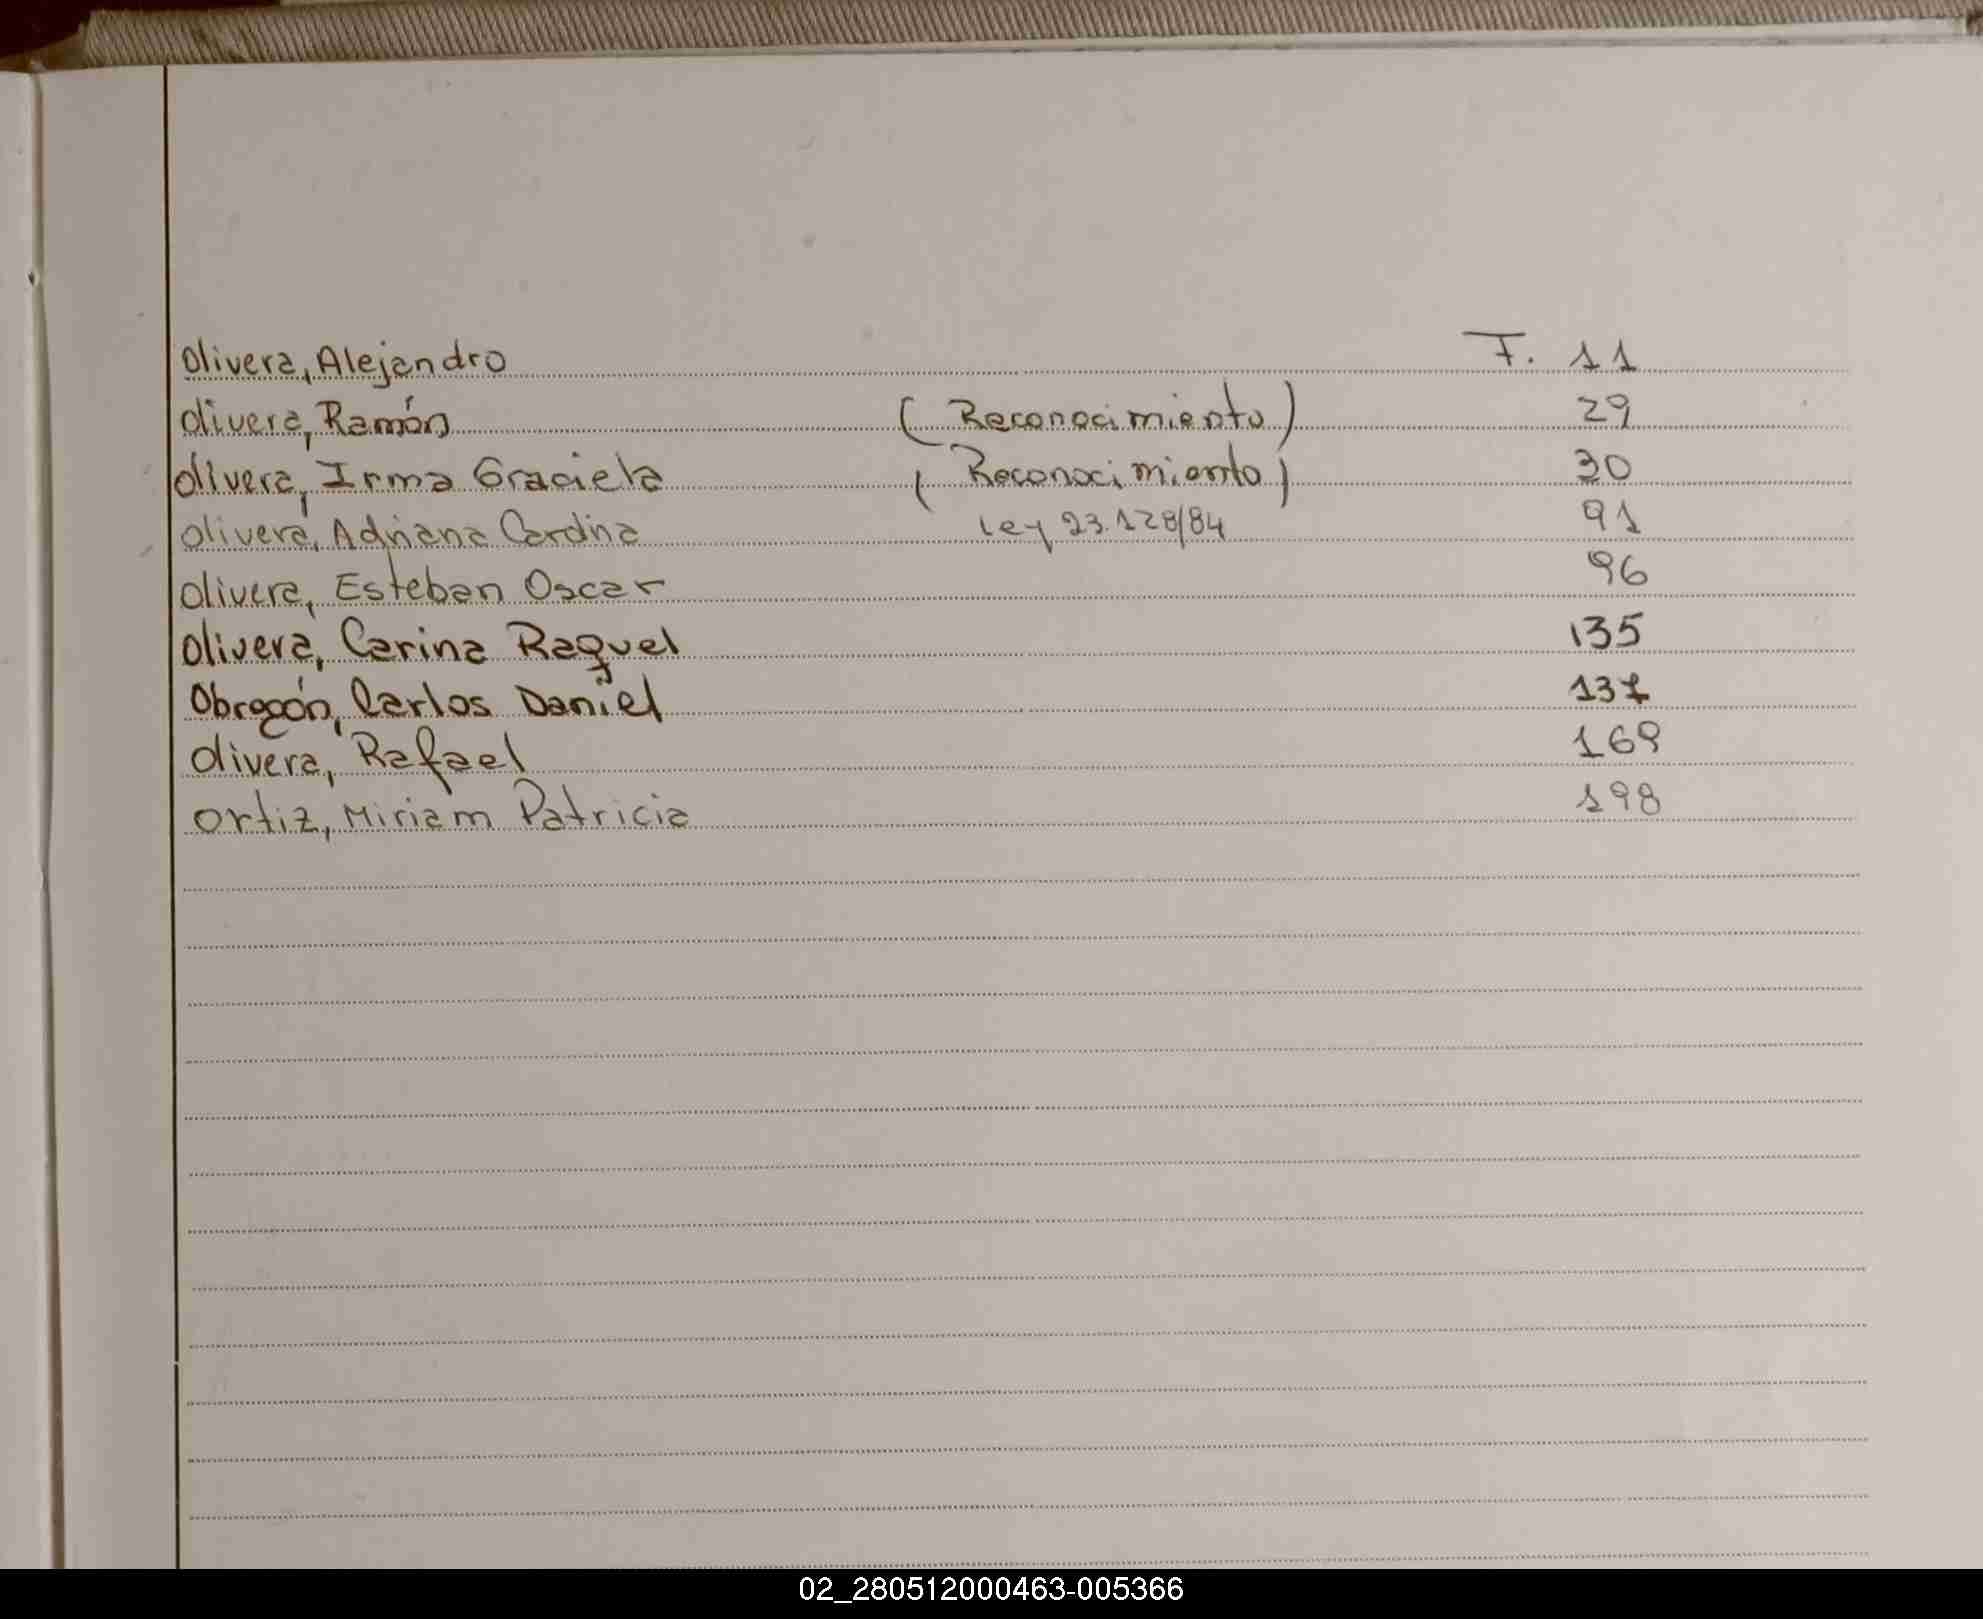 Olivera, Alejandro F. 11
Olivera, Ramón (Reconocimiento) 29
Olivera, Irma Graciela (Reconocimiento) 30
Olivera, Adriana Carolina Ley 23.128/84 91
Olivera, Esteban Oscar 96
Olivera, Carina Raquel 135
Obregón, Carlos Daniel 137
Olivera, Rafael 169
Ortiz, Miriam Patricia 198
02_280512000463-005366